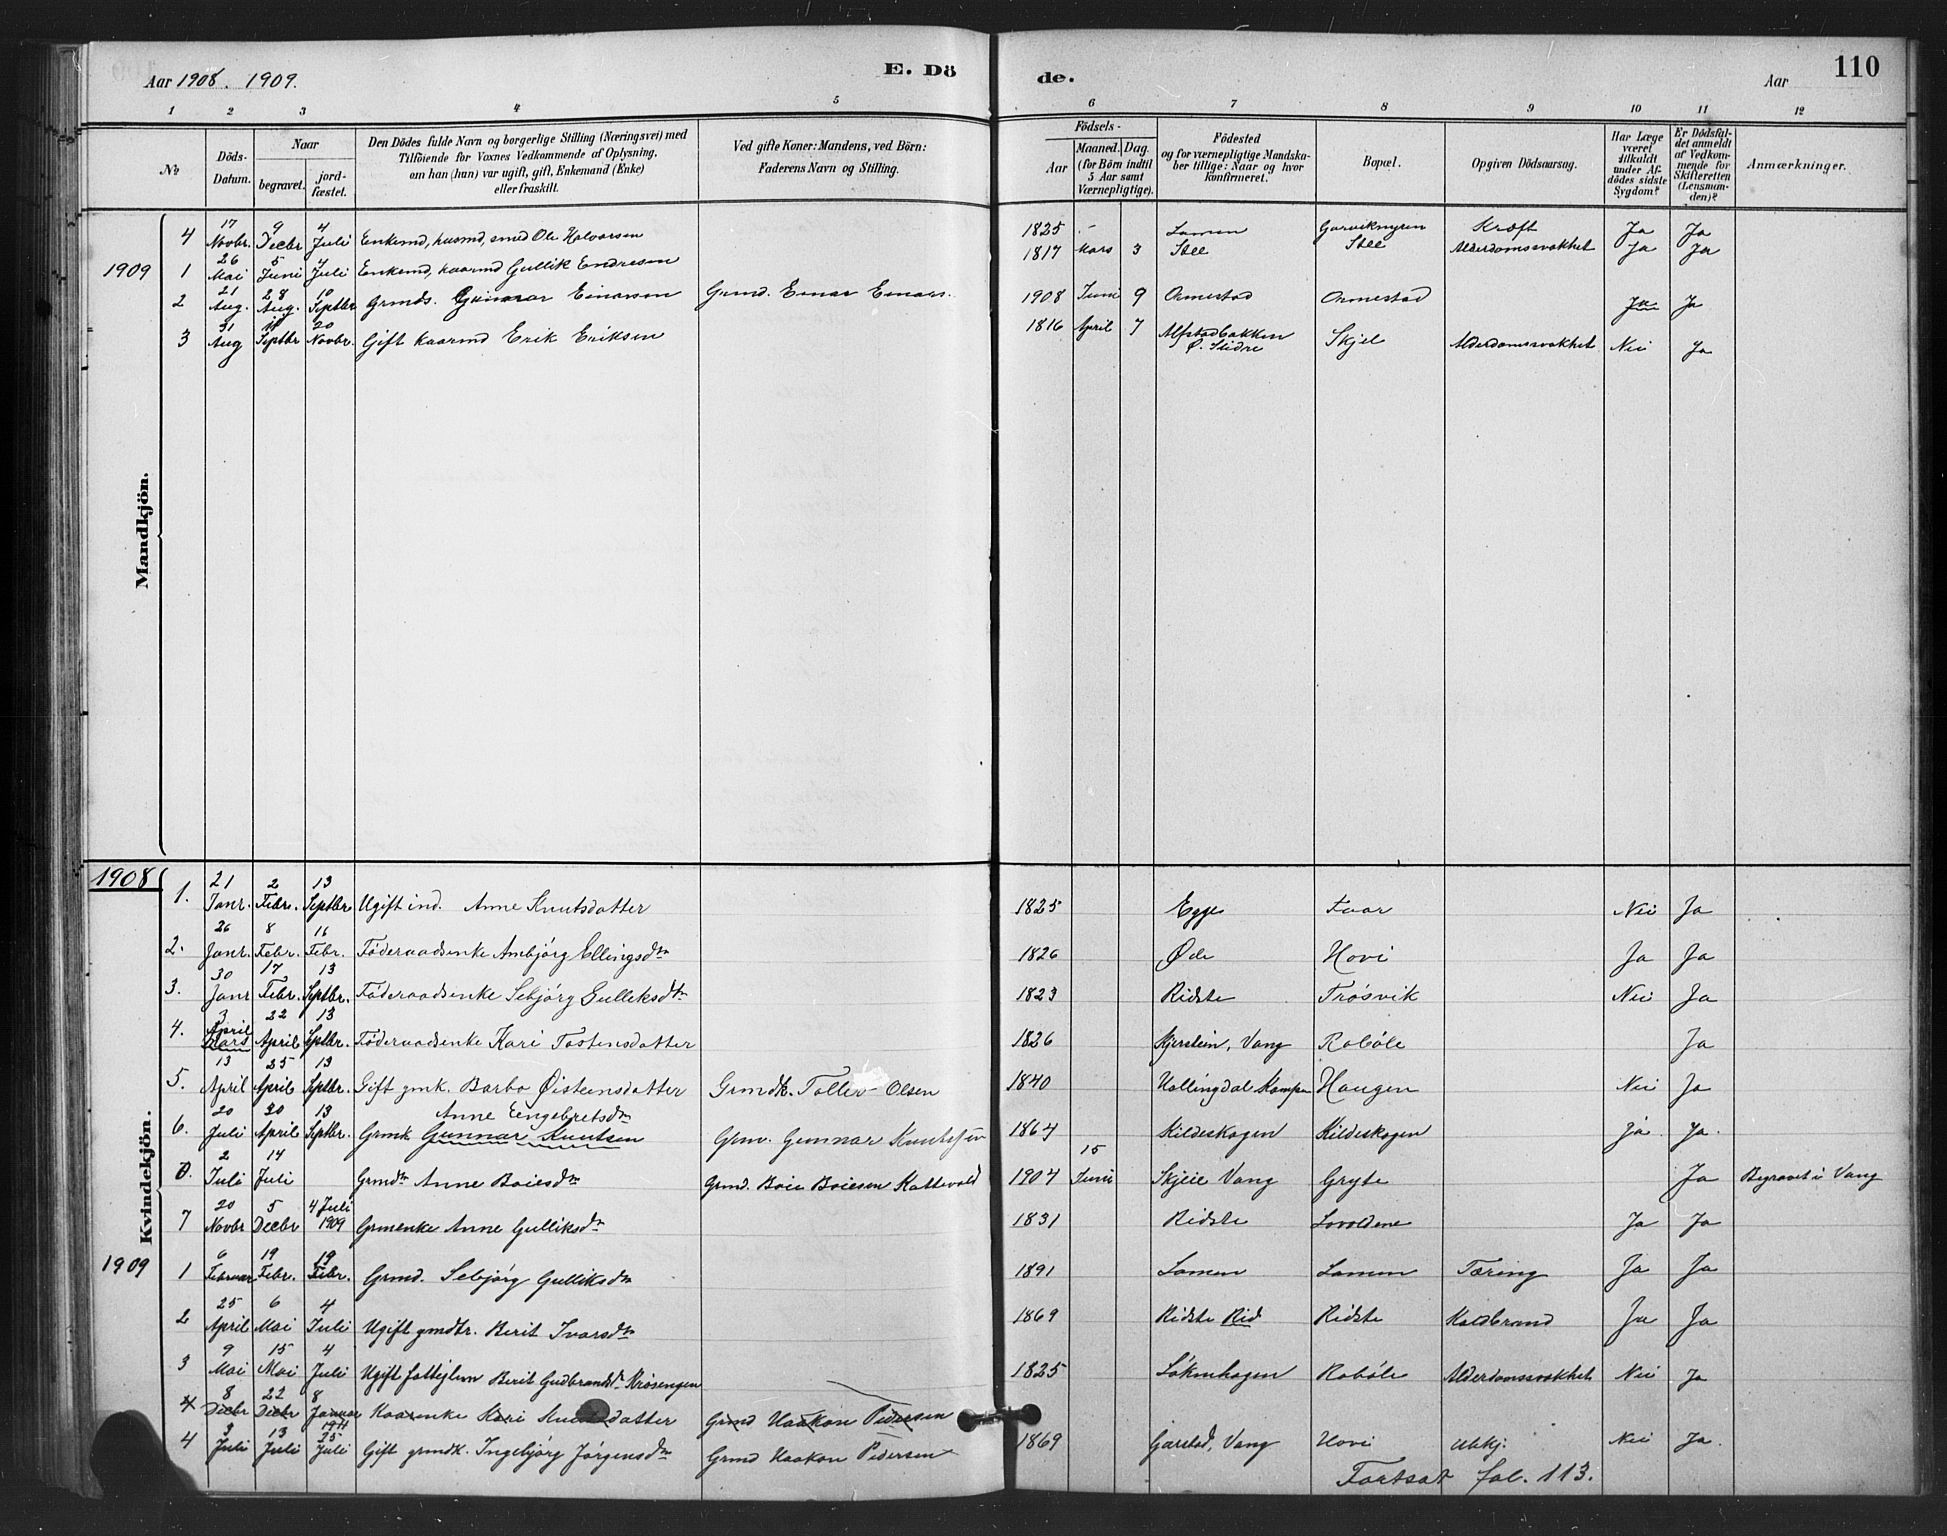 Aar 1908. 1909. E. Dö de. Aar 110
1 2 3 4 5 6 7 8 9 10 11 12
№ Döds-Datum. Naar begravet. jordfæstet. Den Dödes fulde Navn og borgerlige Stilling (Næringsvei) med Tilföiende for Voxnes Vedkommende af Oplysning, om han (hun) var ugift, gift, Enkemand (Enke) eller fraskilt. Ved gifte Koner: Mandens, ved Börn: Faderens Navn og Stilling. Födsels- Aar Maaned. Dag. (for Börn indtil 5 Aar samt Værnepligtige). Födested og for værnepligtige Mandskaber tillige: Naar og hvor konfirmeret. Bopæl. Opgiven Dödsaarsag. Har Læge været tilkaldt under Afdödes sidste Sygdom? Er Dödsfaldet anmeldt af Vedkommende for Skifteretten (Lensmanden)? Anmærkninger.
Mandkjön.
4 17 Novbr. 9 Decbr 4 Juli Enkemd, husmd, smed Ole Halvorsen 1825 - Lomen Garvikmyren Kræft Ja Ja
1909 1 26 Mai 5 Juni 4 Juli Enkemd, kaarmd Gullik Endresen 1817 Mars 3 Stee Stee Alderdomssvakhet Ja Ja
2 21 Aug. 28 Aug. 10 Septbr Grmds. Gunnar Einarsen Grmd. Einar Einars. 1908 Juni 9 Ormestad Ormestad Ja Ja
3 31 Aug 11 Septbr 20 Novbr. Gift kaarmd Erik Eriksen 1816 April 7 Alfstadbakken Ø. Slidre Skjel Alderdomssvakhet Nei Ja
Kvindekjön.
1908 1. 21 Janr. 2 Febr. 13 Septbr Ugift ind. Anne Knutsdatter 1825 Egge Faar Nei Ja
2. 26 Janr. 8 Febr. 16 Febr. Föderaadsenke Ambjörg Ellingsdtr 1826 Øde Hovi Ja Ja
3. 30 Janr 17 Febr. 13 Septbr. Föderaadsenke Sebjörg Gulleksdtr 1823 Ridste Trösvik Nei Ja
4. 3 April Mars 22 April 13 Septbr. Föderaadsenke Kari Tostensdatter 1826 Kjerstein, Vang Roböle Ja
5. 13 April 25 April 13 Septbr. Gift gmk. Barbo Øisteensdatter Grmdk. Tollev Olsen 1840 Hallingdal Kampen Haugen Nei Ja
6. 20 Juli 30 April 13 Septbr. Grmk Anne Engebretsdtr Gunnar Knutsen Grm. Gunnar Knutsen 1864 Kildeskogen Kildeskogen Ja Ja.
0. 2 Juli 14 Juli Grmdtr Anne Boiesdtr Grmd. Boie Boiesen Kattevold 1904 15 Juni Skjeie Vang Gryte Ja Begravet i Vang
7 20 Novbr 5 Decbr 4 Juli 1909 Grmenke Anne Gulliksdtr 1831 Ridste Lovoldene Ja Ja
1909 1 6 Februar 19 Febr. 19 Febr. Grmd. Sebjörg Gulliksdtr 1891 Lomen Lomen Tæring Ja Ja
2 25 April 6 Mai 4 Juli Ugift gmdtr. Berit Ivarsdtr 1869 Ridste Rid Ridste Koldbrand Ja Ja
3 9 Mai 15 Mai 4 Juli Ugift fattiglem Berit Gudbrandsdtr Krösengen 1825 Lökenhagen Roböle Alderdomssvakhet Nei Ja
4 8 Decbr 22 Decbr 8 Januar 1911 Kaarenke Kari Knutsdatter Grmd Haakon Pedersen
4 3 Juli 13 Juli 25 Juli Gift grmdk. Ingebjörg Jörgensdtr Grmd Haakon Pedersen 1869 Garstad, Vang Hovi Ubkj. Nei Ja.
Fortsat fol. 113.